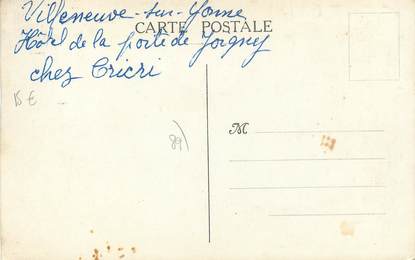 Villeneuve-sur-Yonne
CARTE POSTALE
Hôtel de la porte de Joigny
chez Cricri
15 €
89
M